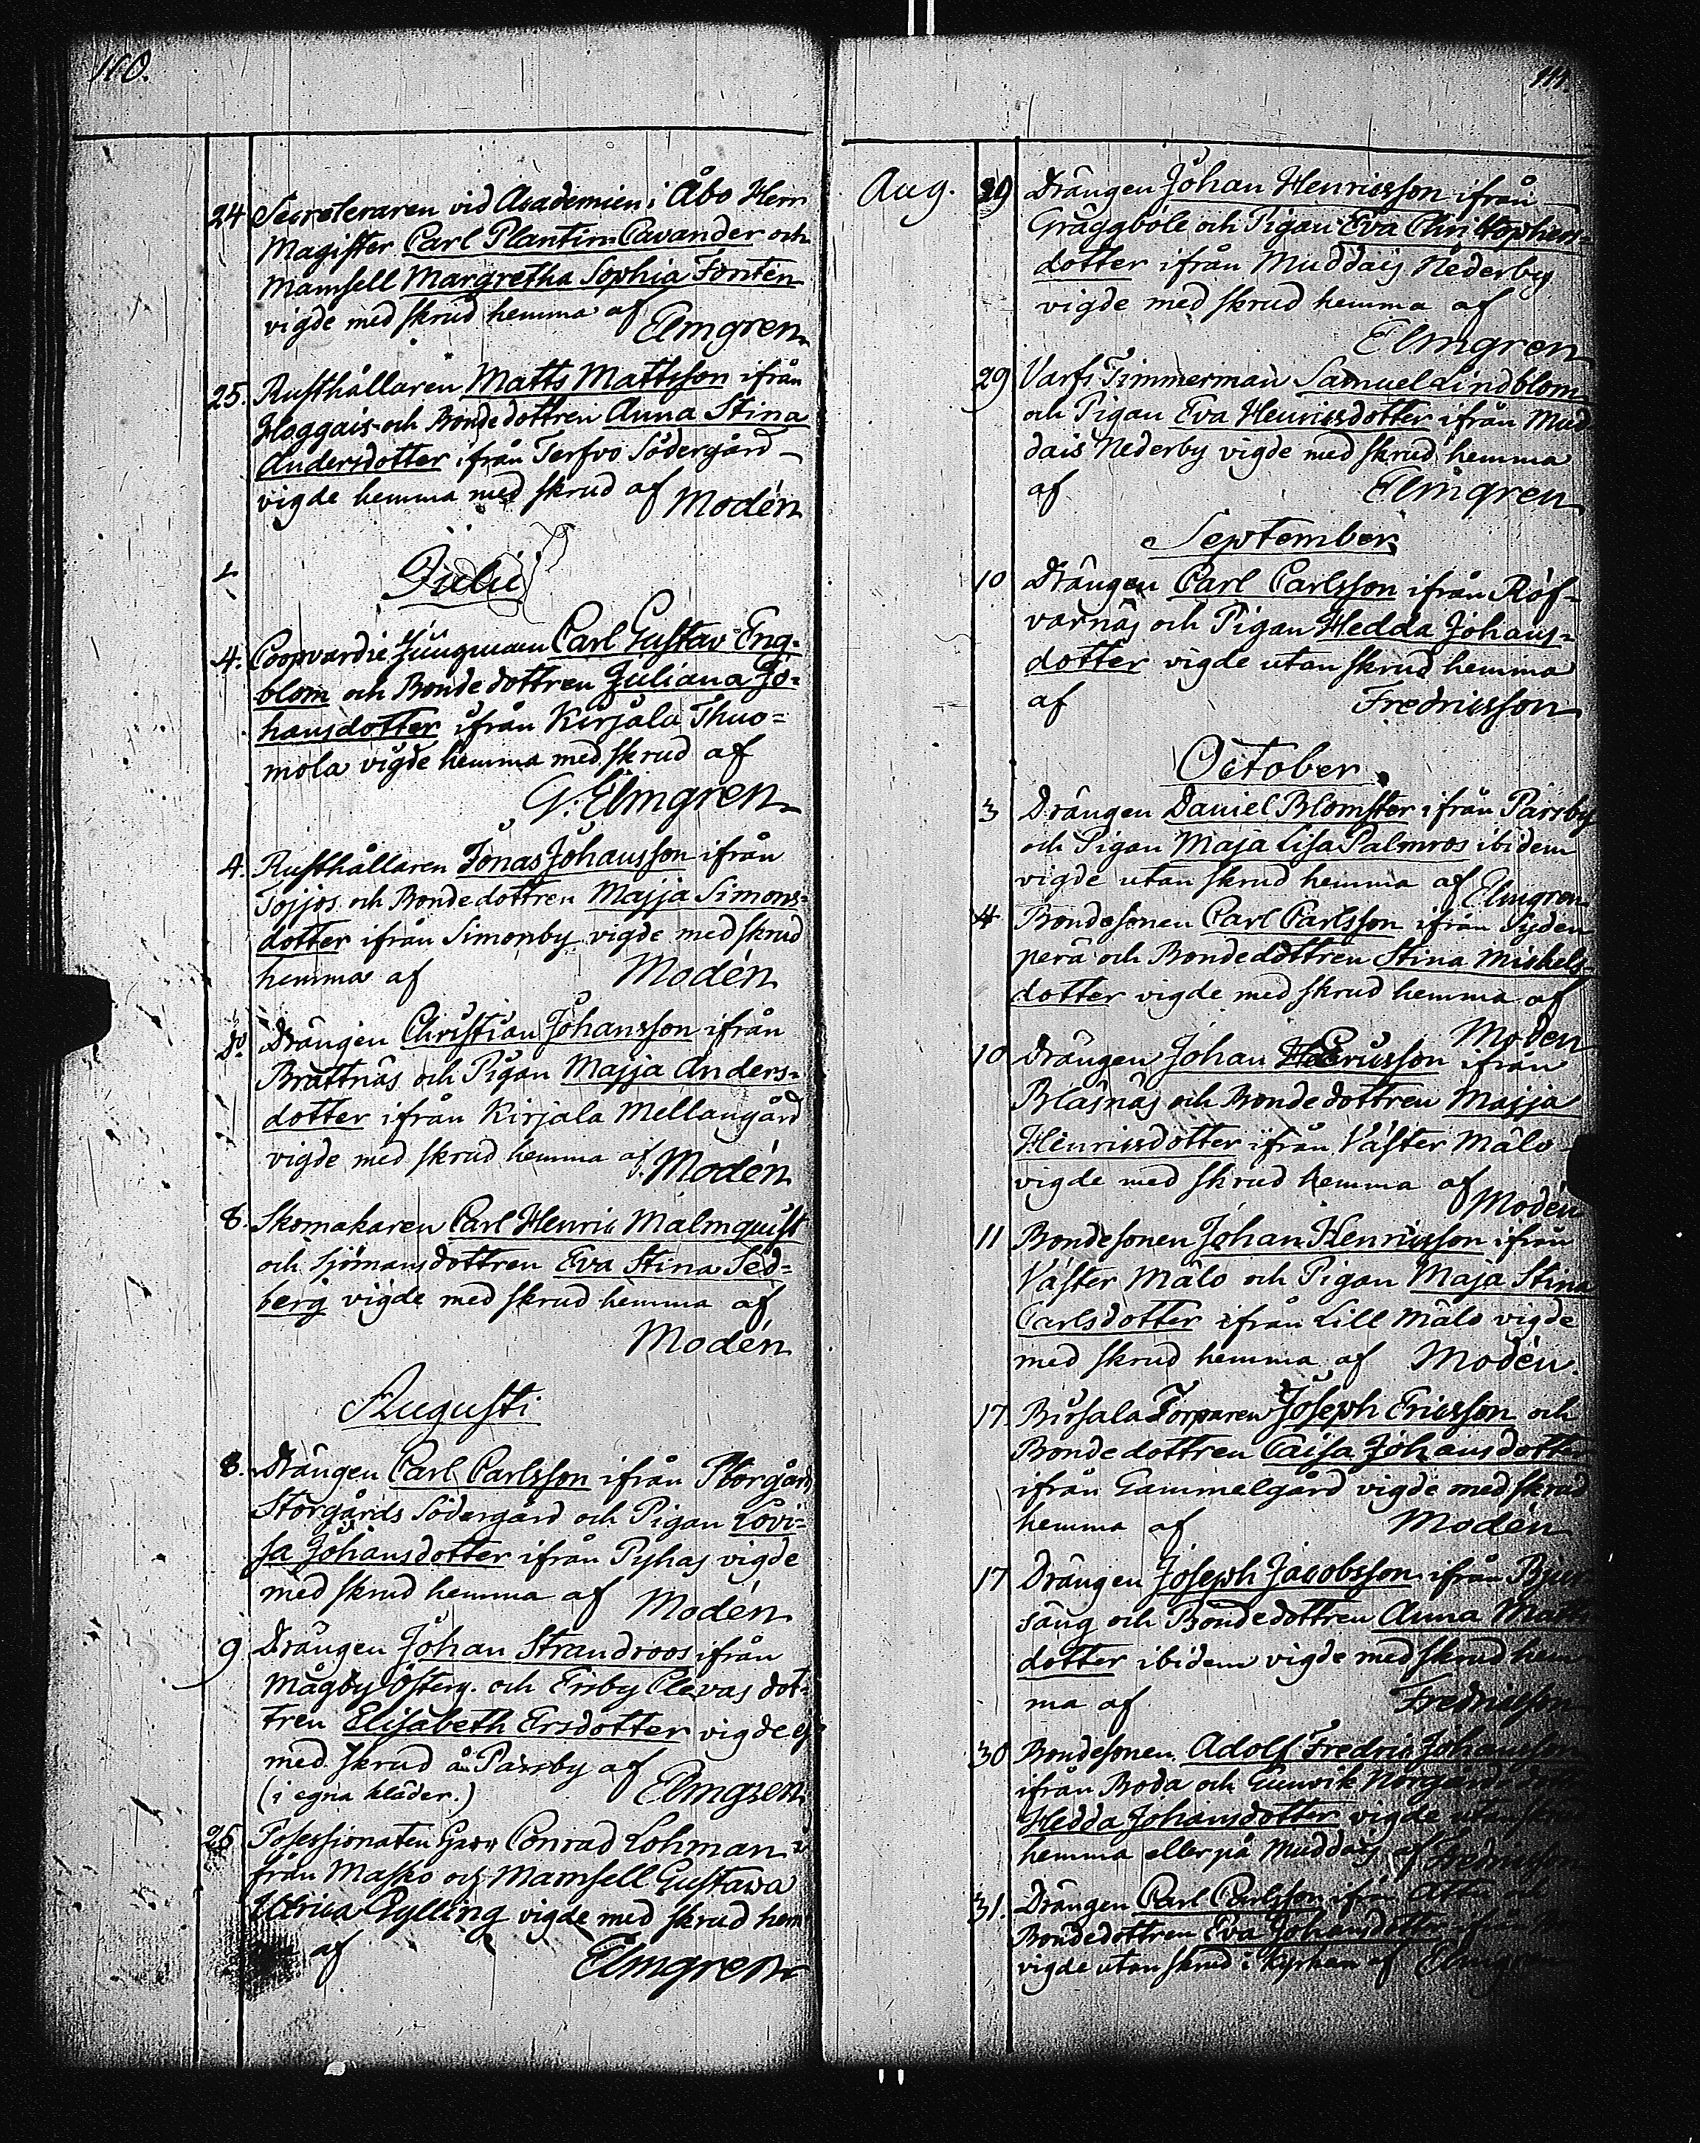 110.
24 Secreteraren vid Academien i Åbo Herr
Magister Carl Plantin Cavander och
Mamsell Margretha Sophia Forsten
vigde med skrud hemma af
Elmgren
25. Rusthållaren Matts Mattsson ifrån
Haggais och Bondedottren Anna Stina
Andersdotter ifrån Terfvo Södergård
vigde hemma med skrud af Modén
Julii
4. Coopvardie Jungman Carl Gustav Eng-
blom och Bondedottren Juliana Jo-
hansdotter ifrån Kirjala Thuo=
mola vigde hemma med skrud af
G. Elmgren
4. Rusthållaren Jonas Johansson ifrån
Tojjos och Bondedottren Majja Simons-
dotter ifrån Simonby vigde med skrud
hemma af Modén
Do Drängen Christian Johansson ifrån
Brattnäs och Pigan Majja Anders-
dotter ifrån Kirjala Mellangård
vigde med skrud hemma af Modén
8. Skomakaren Carl Henric Malmquist
och Sjömansdottren Eva Stina Sed-
berg vigde med skrud hemma af
Modén
Augusti
8. Drängen Carl Carlsson ifrån
Storgårds Södergård och Pigan Lovi-
sa Johansdotter ifrån Pyhas vigde
med skrud hemma af Modén
9 Drängen Johan Strandroos ifrån
Mågby Österg. och Frisby Clevas dot-
tren Elisabeth Ersdotter vigde ej
med skrud å Parsby af
(i egna kläder.) Elmgren
26 Posessionaten Conrad Lohman i
från Masko och Mamsell Gustava
Ulrica Pylling vigde med skrud hem
af Elmgren
111.
Aug. 29 Drängen Johan Henricsson ifrån
Gräggböle och Pigan Eva Christophers-
dotter ifrån Muddais Nederby
vigde med skrud hemma af
Elmgren
29 Varfs Timmerman Samuel Lindblom
och Pigan Eva Henricsdotter ifrån Mud
dais Nederby vigde med skrud hemma
af Elmgren
September
10 Drängen Carl Carlsson ifrån Röf-
varnäs och Pigan Hedda Johans-
dotter vigde utan skrud hemma
af Fredricsson
October
3 Drängen Daniel Blomster ifrån Parsby
och Pigan Maja Lisa Palmros ibidem
vigde utan skrud hemma af Elmgren
4 Bondesonen Carl Carlsson ifrån Syden
perä och Bondedottren Stina Michels
dotter vigde med skrud hemma af
Modén
10 Drängen Johan Ericsson ifrån
Blåsnäs och Bondedottren Majja
Henricsdotter ifrån Väster Mälo
vigde med skrud hemma af
Modén
11 Bondesonen Johan Henricsson ifrån
Väster Mälo och Pigan Maja Stina
Carlsdotter ifrån Lill Mälo vigde
med skrud hemma af Modén.
17 Bursala Torparen Joseph Ericsson och
Bondedottren Caisa Johansdotter
ifrån Gammelgård vigde med skrud
hemma af Modén
17 Drängen Joseph Jacobsson ifrån Bjur
säng och Bondedottren Anna Matts
dotter ibidem vigde med skrud hem
ma af Fredricsson
30 Bondesonen Adolf Fredric Johansson
ifrån Boda och Gunvik Norgårds
Hedda Johansdotter vigde utan skrud
hemma eller på Muddais af Fredricsson
31. Drängen Carl Carlsson ifrån Attu och
Bondedottren Eva Johansdotter ifrån
vigde utan skrud i Kyrkan af Elmgren